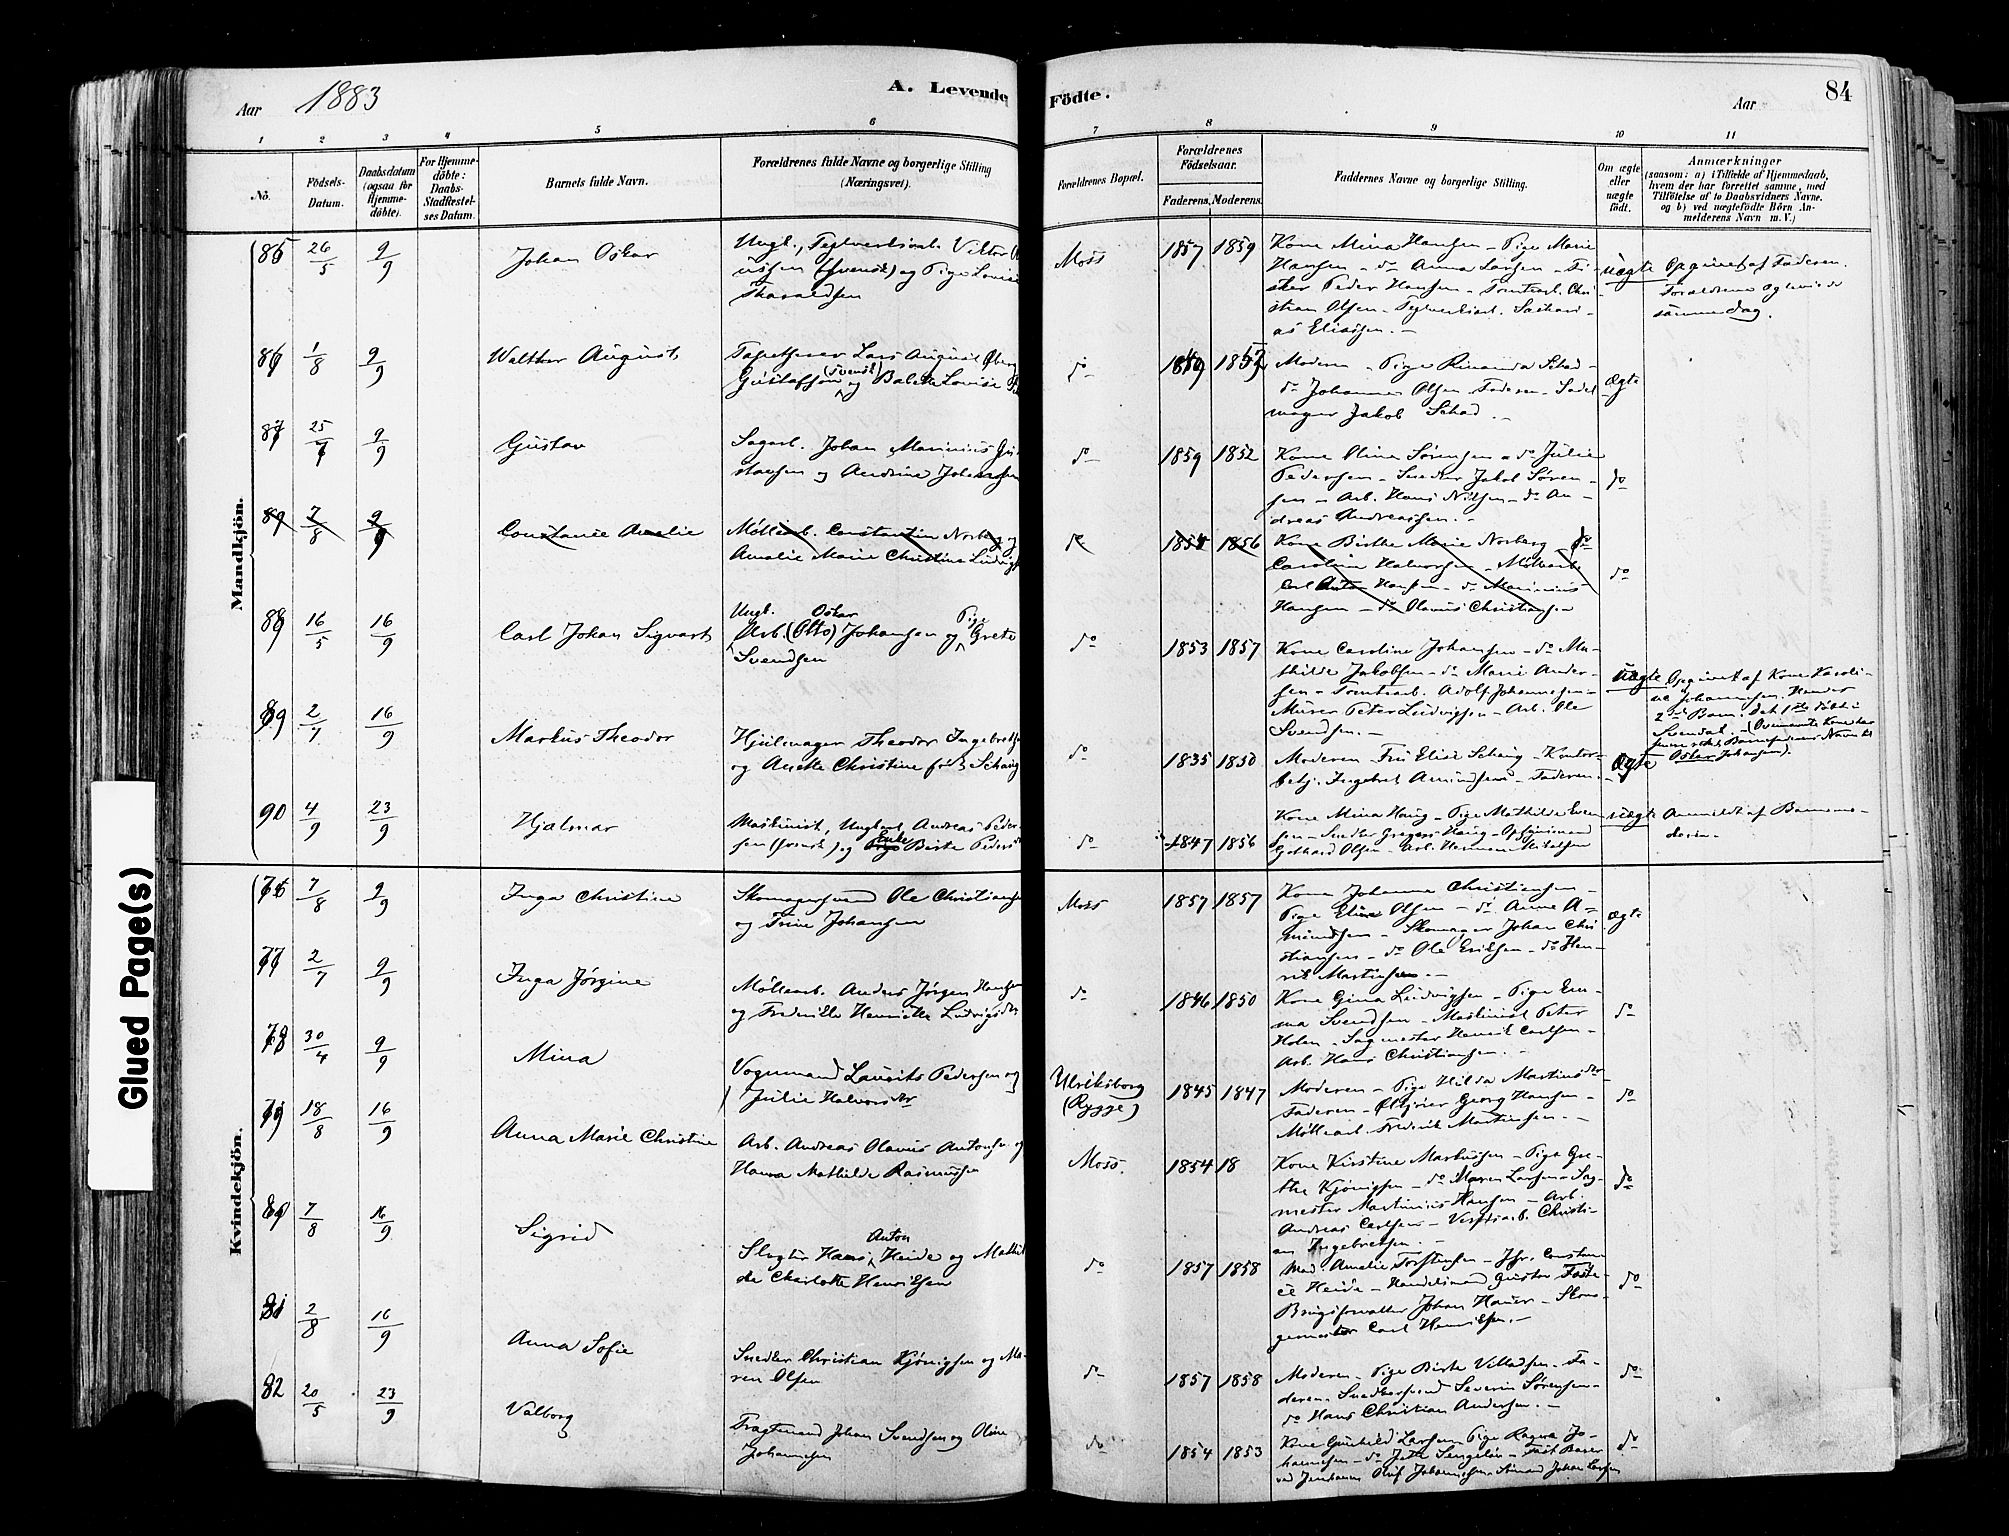 Aar 1883
A. Levende Födte.
Aar
84
1 2 3 4 5 6 7 8 9 10 11
No.
Födsels-
Datum.
Daabsdatum
(ogsaa for
Hjemme-
döbte).
For Hjemme-
döbte:
Daabs-
Stadfæstel-
ses Datum.
Barnets fulde Navn.
Forældrenes fulde Navne og borgerlige Stilling
(Næringsvei).
Forældrenes Bopæl.
Forældrenes
Födselsaar.
Faderens. Moderens.
Faddernes Navne og borgerlige Stilling.
Om ægte
eller
uægte
født.
Anmærkninger
(saasom: a) i Tilfælde af Hjemmedaab,
hvem der har forrettet samme, med
Tilföielse af to Daabsvidners Navne.
og b) ved uægtefödte Börn An-
melderens Navn m. V.)
Mandkjön.
85 26/5 9/9 Johan Oskar
Ungk., Teglverksarb. Viktor
(svensk) og Pige Louise
Tharaldsen
Moss 1857 1859
Kone Mina Hansen - Pige Marie
Hansen - do Anna Larsen - Fi-
sker Peder Hansen - Tomtearb. Chri-
stian Olsen - Teglverksarb. Sakari-
as Eliassen. -
uægte
Opgivet af Faderen.
Forældrene
samme Dag.
86 1/8 9/9 Walther August
Tapetserer Lars August Øberg
Gustafsson (svensk) og Louise
do
Moderen - Pige Schad -
do Johanne Olsen - Faderen - Sadel-
mager Jakob Schad -
Ægte
87 25/7 9/9 Gustav
Sagarb. Johan Marinius Gu-
stavsen og Andrine Johansen
do 1859 1852
Kone Oline Sørensen - do Julie
Pedersen - Snedker Jakob Søren-
sen - Arb. Hans Nilsen - do An-
dreas Andreassen. -
do
7/8 9/9 Constance Amelie
Møllearb. Constantin Norberg og
Amalie Marie Christine Ludvigs
1856
Kone Birthe Marie Norberg - do
Caroline Halvorsen - Møllearb.
Carl Anton Hansen - do Marinius
Hansen - do Olavus Christiansen
do
88 16/5 16/9 Carl Johan Sigvart
Ungk. Oskar Pige
Arb. (Otto) Johansen og Grete
Svendsen
do 1853 1857
Kone Caroline Johansen - do Ma-
thilde Jakobsen - do Marie Ander-
sen - Tomtearb. Adolf Johannesen -
Murer Peter Ludvigsen - Arb. Ole
Svendsen. -
uægte
Opgivet af Kone Karoli-
ne Johannesen. Hendes
2det Barn, det 1ste døbt i
Svendal. - (Ovennævnte Kone har
Barnefaderens Navn til
Oskar Johansen).
89 2/7 16/9 Markus Theodor
Hjulmager Theodor Ingebretsen
og Anette Christine født Schaug
do 1835 1850
Moderen - Fru Elise Schaug - Kontor-
betj. Ingebret Amundsen - Faderen.
Ægte
90 4/9 23/9 Hjalmar
Maskinist, Ungkarl Andreas Peder-
sen (svensk) og Enke Birte Peders
do 1847 1856
Kone Mina Haug - Pige Mathilde Even-
sen - Snedker Gregers Haug - Opsynsmand
Gothard Olsen - Arb. Herman Mikalsen
uægte
Anmeldt af Barnemo-
deren.
Kvindekjön.
76 7/8 9/9 Inga Christine
Skomagersvend Ole Christiansen
og Trine Johansen
Moss 1857 1857
Kone Johanna Christiansen -
Pige Eline Olsen - do Anne A-
mundsen - Skomager Johan Chri-
stiansen - do Ole Eriksen - do Hen-
rik Martinsen. -
Ægte
77 2/7 9/9 Inga Jørgine
Møllearb. Anders Jørgen Hansen
og Fredrikke Henriette Ludvigsdr
do 1846 1850
Kone Gina Ludvigsen - Pige Em-
ma Svendsen - Maskinist Peter
Holen - Sagmester Henrik Carlsen -
Arb. Hans Christiansen. -
do
78 30/4 9/9 Mina
Vognmand Laurits Pedersen og
Julie Halvorsdtr
Ulriksborg
(Rygge)
1845 1847
Moderen - Pige Hilda Martinsdtr -
Faderen - Georg Hansen -
Møllearb. Fredrik Martinsen. -
do
79 18/8 16/9 Anna Marie Christine
Arb. Andreas Olavus Antonsen og
Hanna Mathilde Rasmussen
Moss. 1854 18
Kone Kirstine Markussen - Pige Gre-
the Kjønigsen - do Maren Larsen - Sag-
mester Martinius Hansen - Arb.
Andreas Carlsen - Verftsarb. Christi-
an Ingebretsen. -
do
80 7/8 16/9 Sigrid
Anton
Slagter Hans Heide og Mathil-
de Charlotte Henriksen
do 1857 1858
Mad. Amalie Torstensen - Jfr. Constan-
ce Heide - Handelsmand Gustav
Brugsforvalter Johan Hauer -
Carl Henriksen. -
do
81 2/8 16/9 Anna Sofie
Snedker Christian Kjønigsen og Ma-
ren Olsen
do 1857 1858
Moderen - Pige Birte Villadsen - Fa-
deren - Snedkersvend Severin Sørensen
do Hans Christian Andersen. -
do
82 20/5 23/9 Valborg
Fragtemand Johan Svendsen og Oline
Johannesen
do 1854 1853
Kone Gunhild Larsen - Pige Ragna Jo-
hannesen - do
ved Jernbanen Oluf Johannesen - Johan Larsen
do
Glued Page(s)